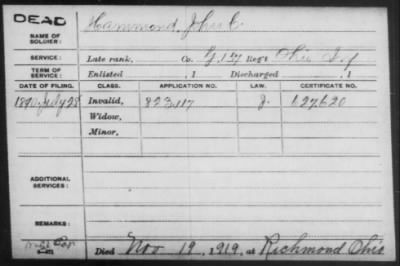 DEAD
Hammond, John C.
NAME OF
SOLDIER:
SERVICE: Late rank, Co. G, 157 Reg't Ohio Inf
TERM OF
SERVICE: Enlisted , 1 Discharged , 1
DATE OF FILING. CLASS. APPLICATION NO. LAW. CERTIFICATE NO.
1890, July 28 Invalid, 823,117 J. 627620
Widow,
Minor,
ADDITIONAL
SERVICES:
REMARKS:
Died Nov 19, 1919, at Richmond Ohio